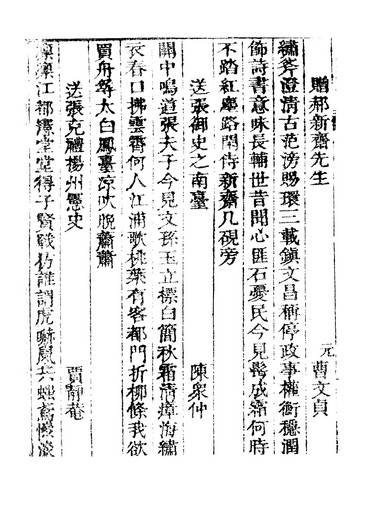 贈郝新齋先生
元 曹文貞
繡斧澄清古范滂賜環三載鎮文昌稱停政事權衡穩潤
飾詩書意味長輔世昔聞心匪石憂民今見鬢成霜何時
不踏紅塵路閒侍新齋几硯旁
送張御史之南臺 陳衆仲
關中鳴道張夫子今見文孫玉立標白簡秋霜清瘴海繡
衣春日拂雲霄何人江浦歌桃葉有客都門折柳條我欲
買舟尋太白鳳臺涼吹脫蕭蕭
送張克禮楊州憲史 賈靜菴
凜凜江都憲堂堂得子賢誰謂虎嘯風共